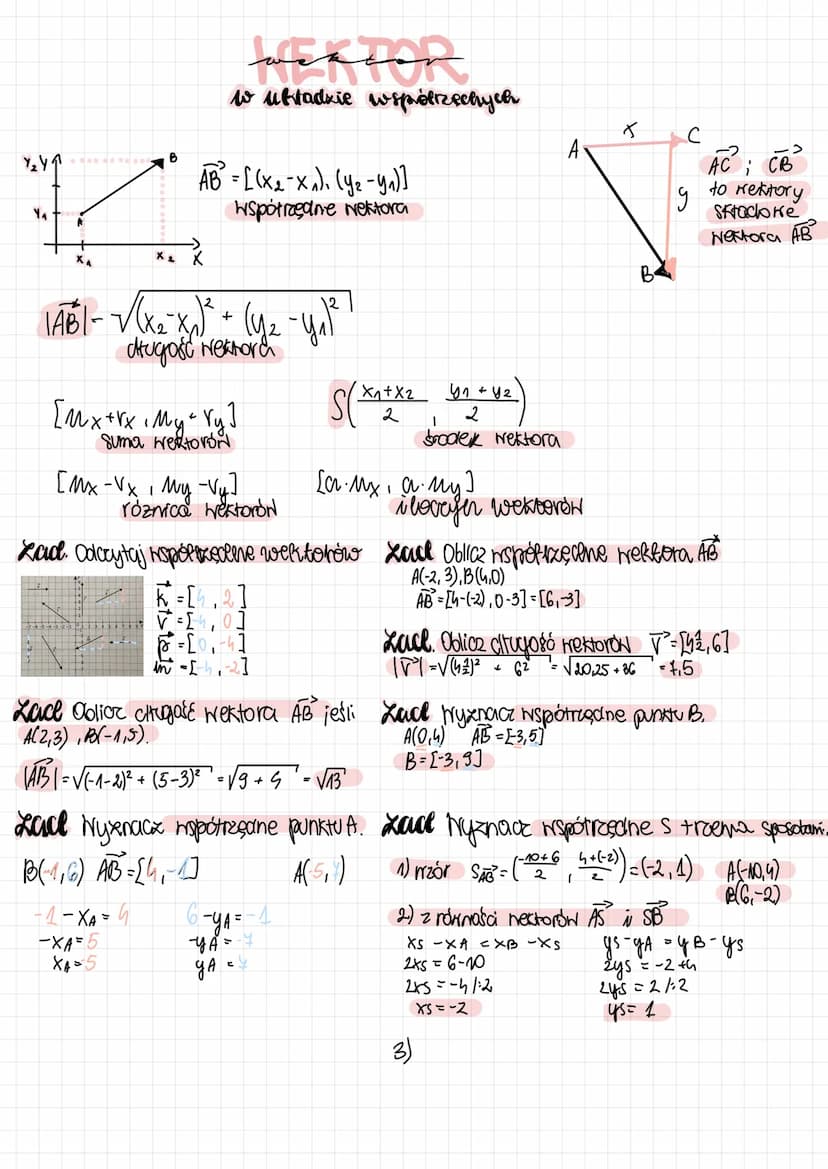 WEKTOR
wektor
w układzie współrzędnych
Y₂ Y B
Y₁ A
x₁ x₂ X
AB = [(x₂-x₁), (y₂-y₁)]
współrzędne wektora
A x C
y
B
AC ; CB
to wektory
składowe
wektora AB
|AB| = √(x₂-x₁)² + (y₂-y₁)²
długość wektora
[ux+vx, uy+vy]
suma wektorów
S(x₁+x₂/2, y₁+y₂/2)
środek wektora
[ux-vx, uy-vy]
różnica wektorów
[a·ux, a·uy]
iloczyn wektorów
Zad. Odczytaj współrzędne wektorów
k = [4, 2]
v = [-4, 0]
p = [0, -4]
m = [-4, -2]
Zad Oblicz współrzędne wektora AB
A(-2, 3), B(4,0)
AB = [4-(-2), 0-3] = [6,-3]
Zad. Oblicz długość wektorów v = [4½, 6]
|v| = √(4½)² + 6² = √20,25 + 36 = 7,5
Zad Oblicz długość wektora AB jeśli
A(2,3), B(-1,5).
|AB| = √(-1-2)² + (5-3)² = √9 + 4 = √13
Zad Wyznacz współrzędne punktu B.
A(0,4) AB = [-3,5]
B = [-3, 9]
Zad Wyznacz współrzędne punktu A.
B(-1,6) AB = [4,-1] A(-5,7)
-1 - xA = 4 6 - yA = -1
-xA = 5 -yA = -7
xA = -5 yA = 7
Zad Wyznacz współrzędne S trzema sposobami.
1) wzór SAB = (-10+6/2, 4+(-2)/2) = (-2, 1) A(-10,4)
B(6,-2)
2) z równości wektorów AS i SB
xs - xA = xB - xs ys - yA = yB - ys
2xs = 6-10 2ys = -2+4
2xs = -4 /:2 2ys = 2 /:2
xs = -2 ys = 1
3)